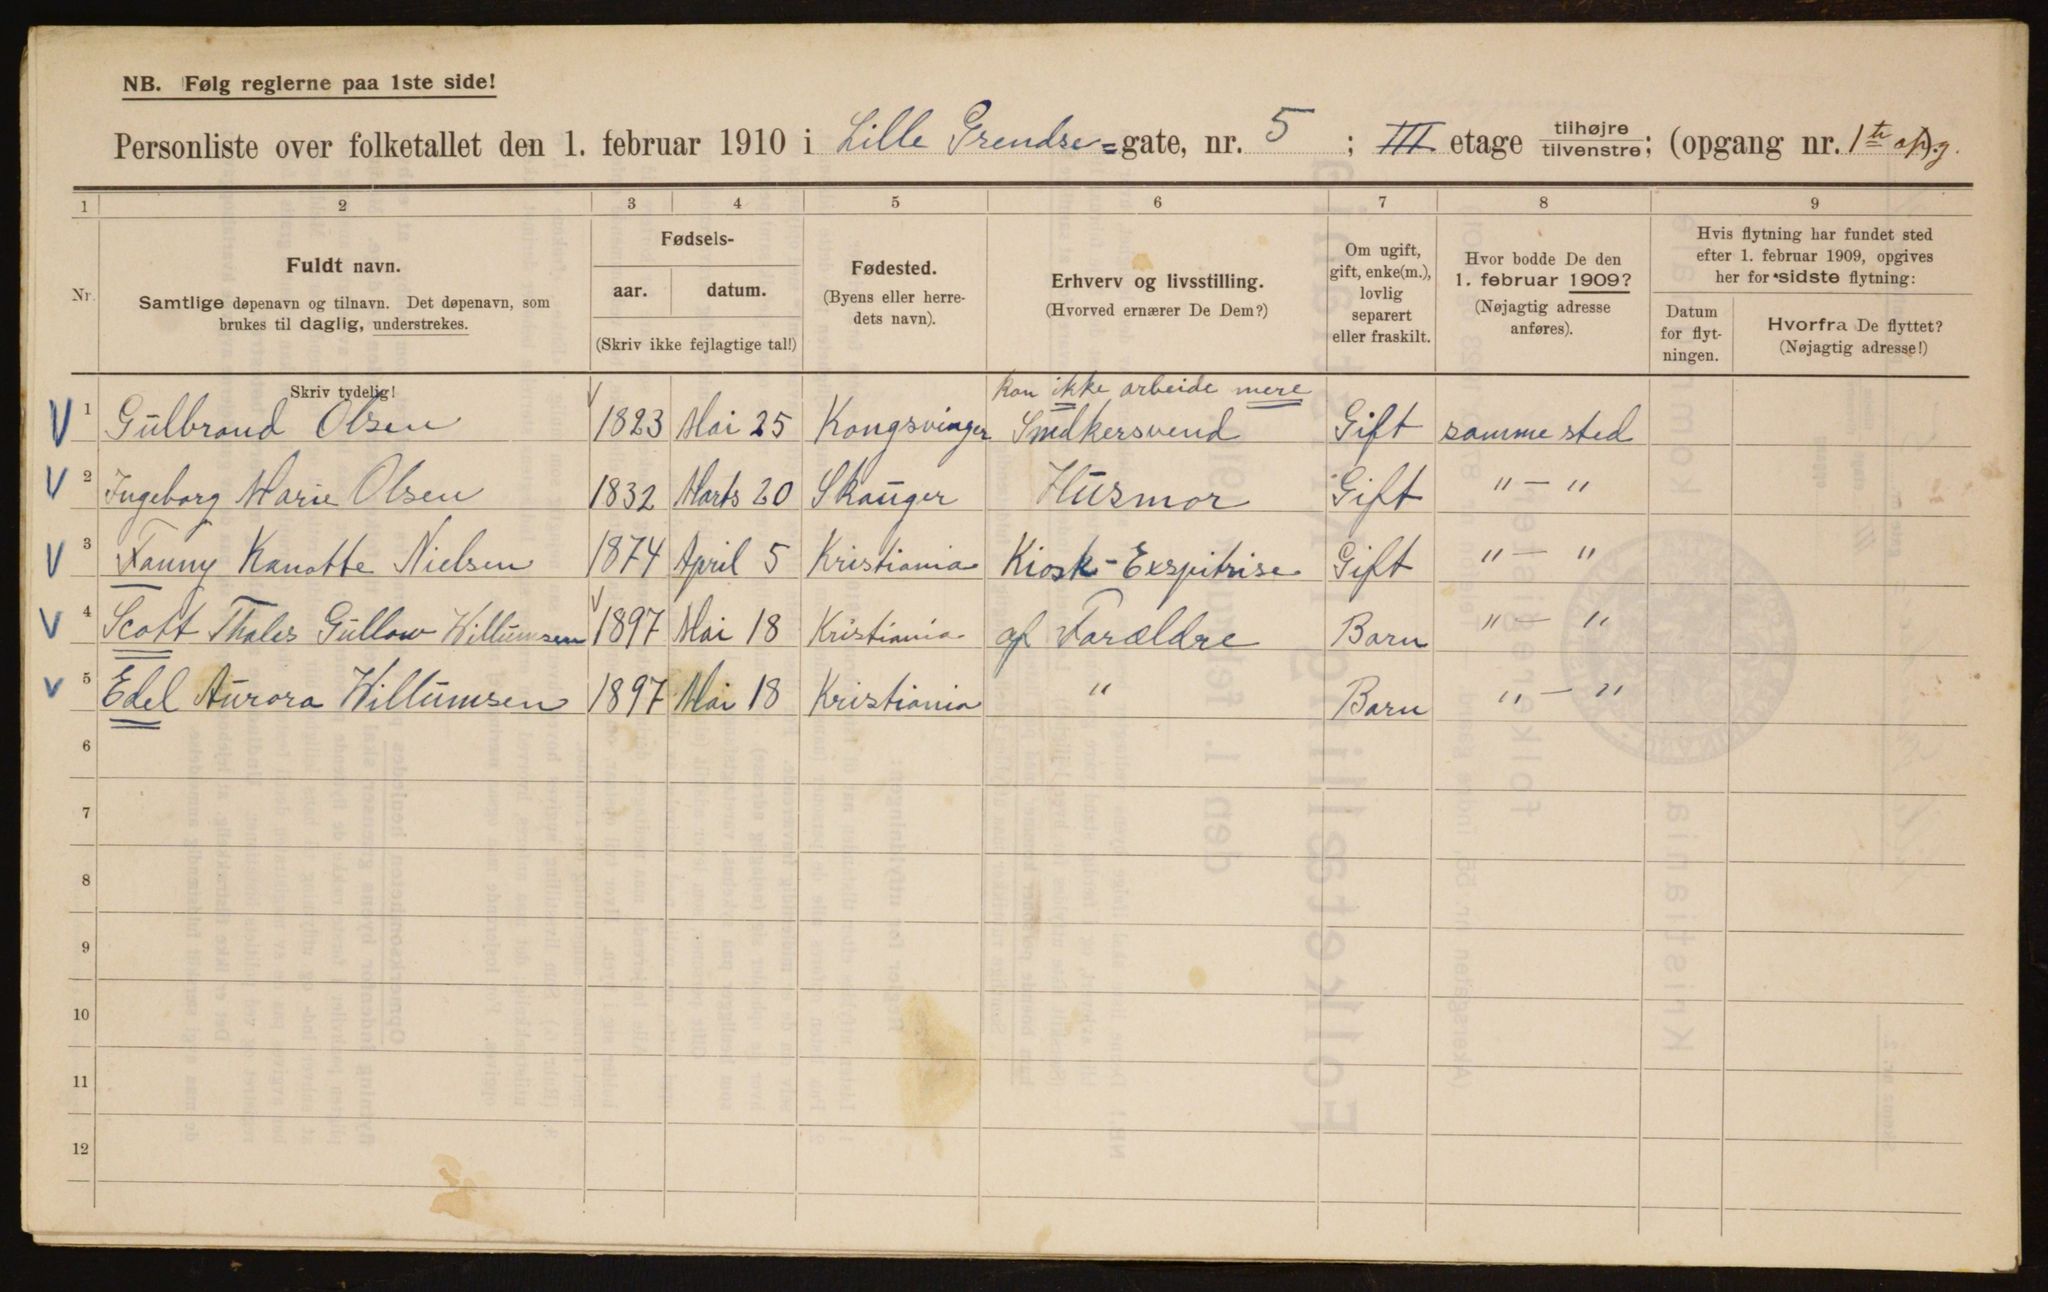 NB. Følg reglerne paa 1ste side!
Personliste over folketallet den 1. februar 1910 i Lille Grendse-gate, nr. 5 ; III etage tilhøjre tilvenstre; (opgang nr. 1te opg.
1 2 3 4 5 6 7 8 9
Nr.
Fuldt navn.
Samtlige døpenavn og tilnavn. Det døpenavn, som
brukes til daglig, understrekes.
Fødsels-
aar. datum.
(Skriv ikke fejlagtige tal!)
Fødested.
(Byens eller herre-
dets navn).
Erhverv og livsstilling.
(Hvorved ernærer De Dem?)
Om ugift,
gift, enke(m.),
lovlig
separert
eller fraskilt.
Hvor bodde De den
1. februar 1909?
(Nøjagtig adresse
anføres).
Hvis flytning har fundet sted
efter 1. februar 1909, opgives
her for sidste flytning:
Datum
for flyt-
ningen.
Hvorfra De flyttet?
(Nøjagtig adresse!)
Skriv tydelig!
kan ikke arbeide mere
1 Gulbrand Olsen 1823 Mai 25 Kongsvinger Snedkersvend Gift samme sted
2 Ingeborg Marie Olsen 1832 Marts 20 Skauger Husmor Gift " — "
3 Fanny Kanotte Nielsen 1874 April 5 Kristiania Kiosk-Exspitrise Gift " — "
4 Scott Thales Gullow Willumsen 1897 Mai 18 Kristiania af Forældre Barn " — "
5 Edel Aurora Willumsen 1897 Mai 18 Kristiania " Barn " — "
6
7
8
9
10
11
12